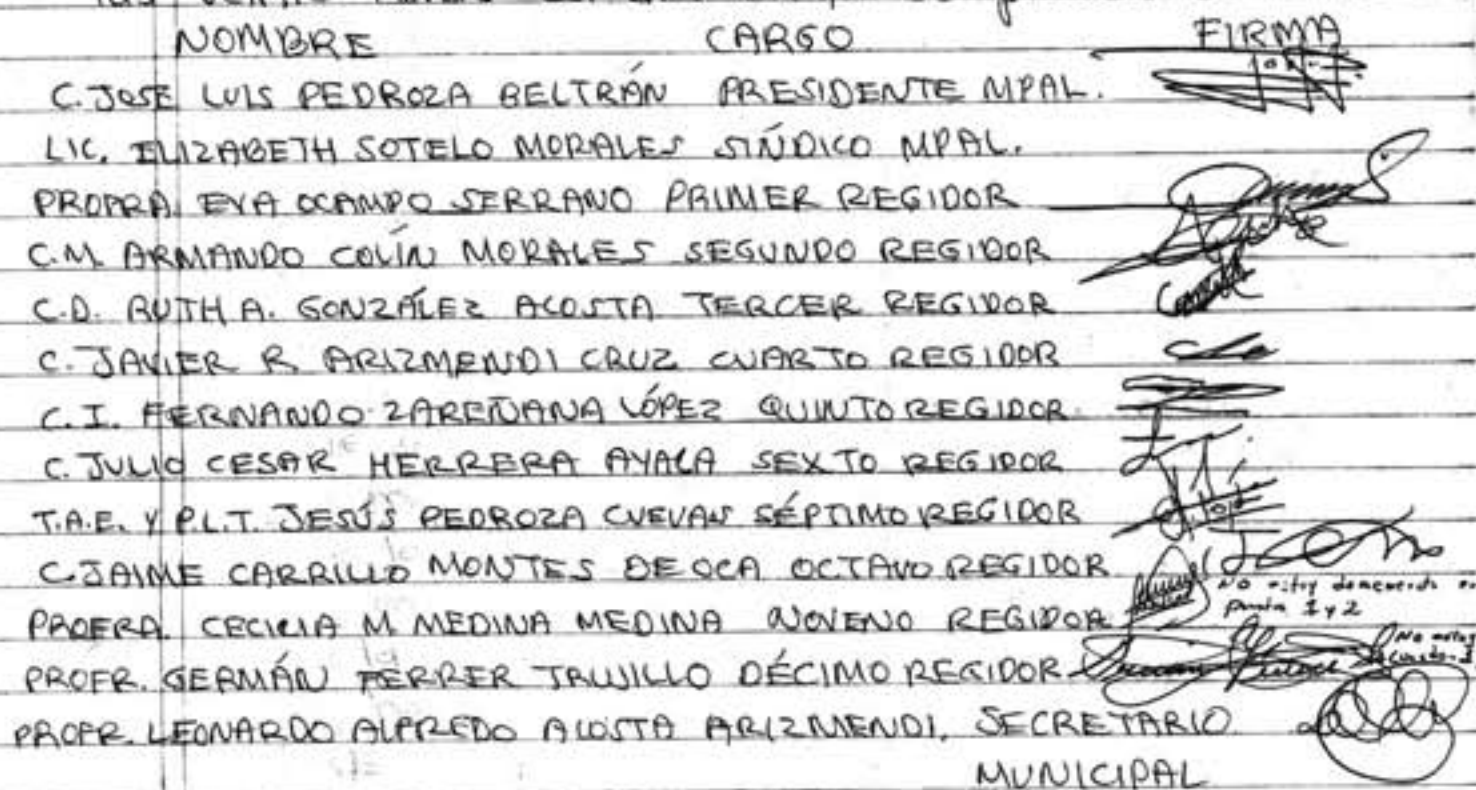 NOMBRE CARGO FIRMA
C. JOSE LUIS PEDROZA BELTRÁN PRESIDENTE MPAL.
LIC. ELIZABETH SOTELO MORALES SÍNDICO MPAL.
PROFRA EVA OCAMPO SERRANO PRIMER REGIDOR
C.M. ARMANDO COLÍN MORALES SEGUNDO REGIDOR
C.D. RUTH A. GONZÁLEZ ACOSTA TERCER REGIDOR
C. JAVIER R ARIZMENDI CRUZ CUARTO REGIDOR
C.I. FERNANDO ZAREÑANA LÓPEZ QUINTO REGIDOR
C. JULIO CESAR HERRERA AYALA SEXTO REGIDOR
T.A.E. Y P.L.T. JESÚS PEDROZA CUEVAS SÉPTIMO REGIDOR
C. JAIME CARRILLO MONTES DE OCA OCTAVO REGIDOR
No estoy
punto 1 y 2
PROFRA. CECILIA M. MEDINA MEDINA NOVENO REGIDOR
No estoy
PROFR. GERMÁN FERRER TRUJILLO DÉCIMO REGIDOR
PROFR. LEONARDO ALFREDO ACOSTA ARIZMENDI, SECRETARIO
MUNICIPAL